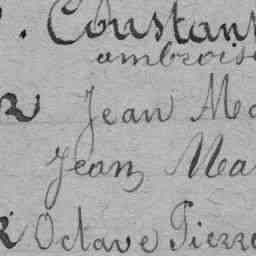 Constant
ambroise
Jean Ma
Jean Ma
Octave Pierre